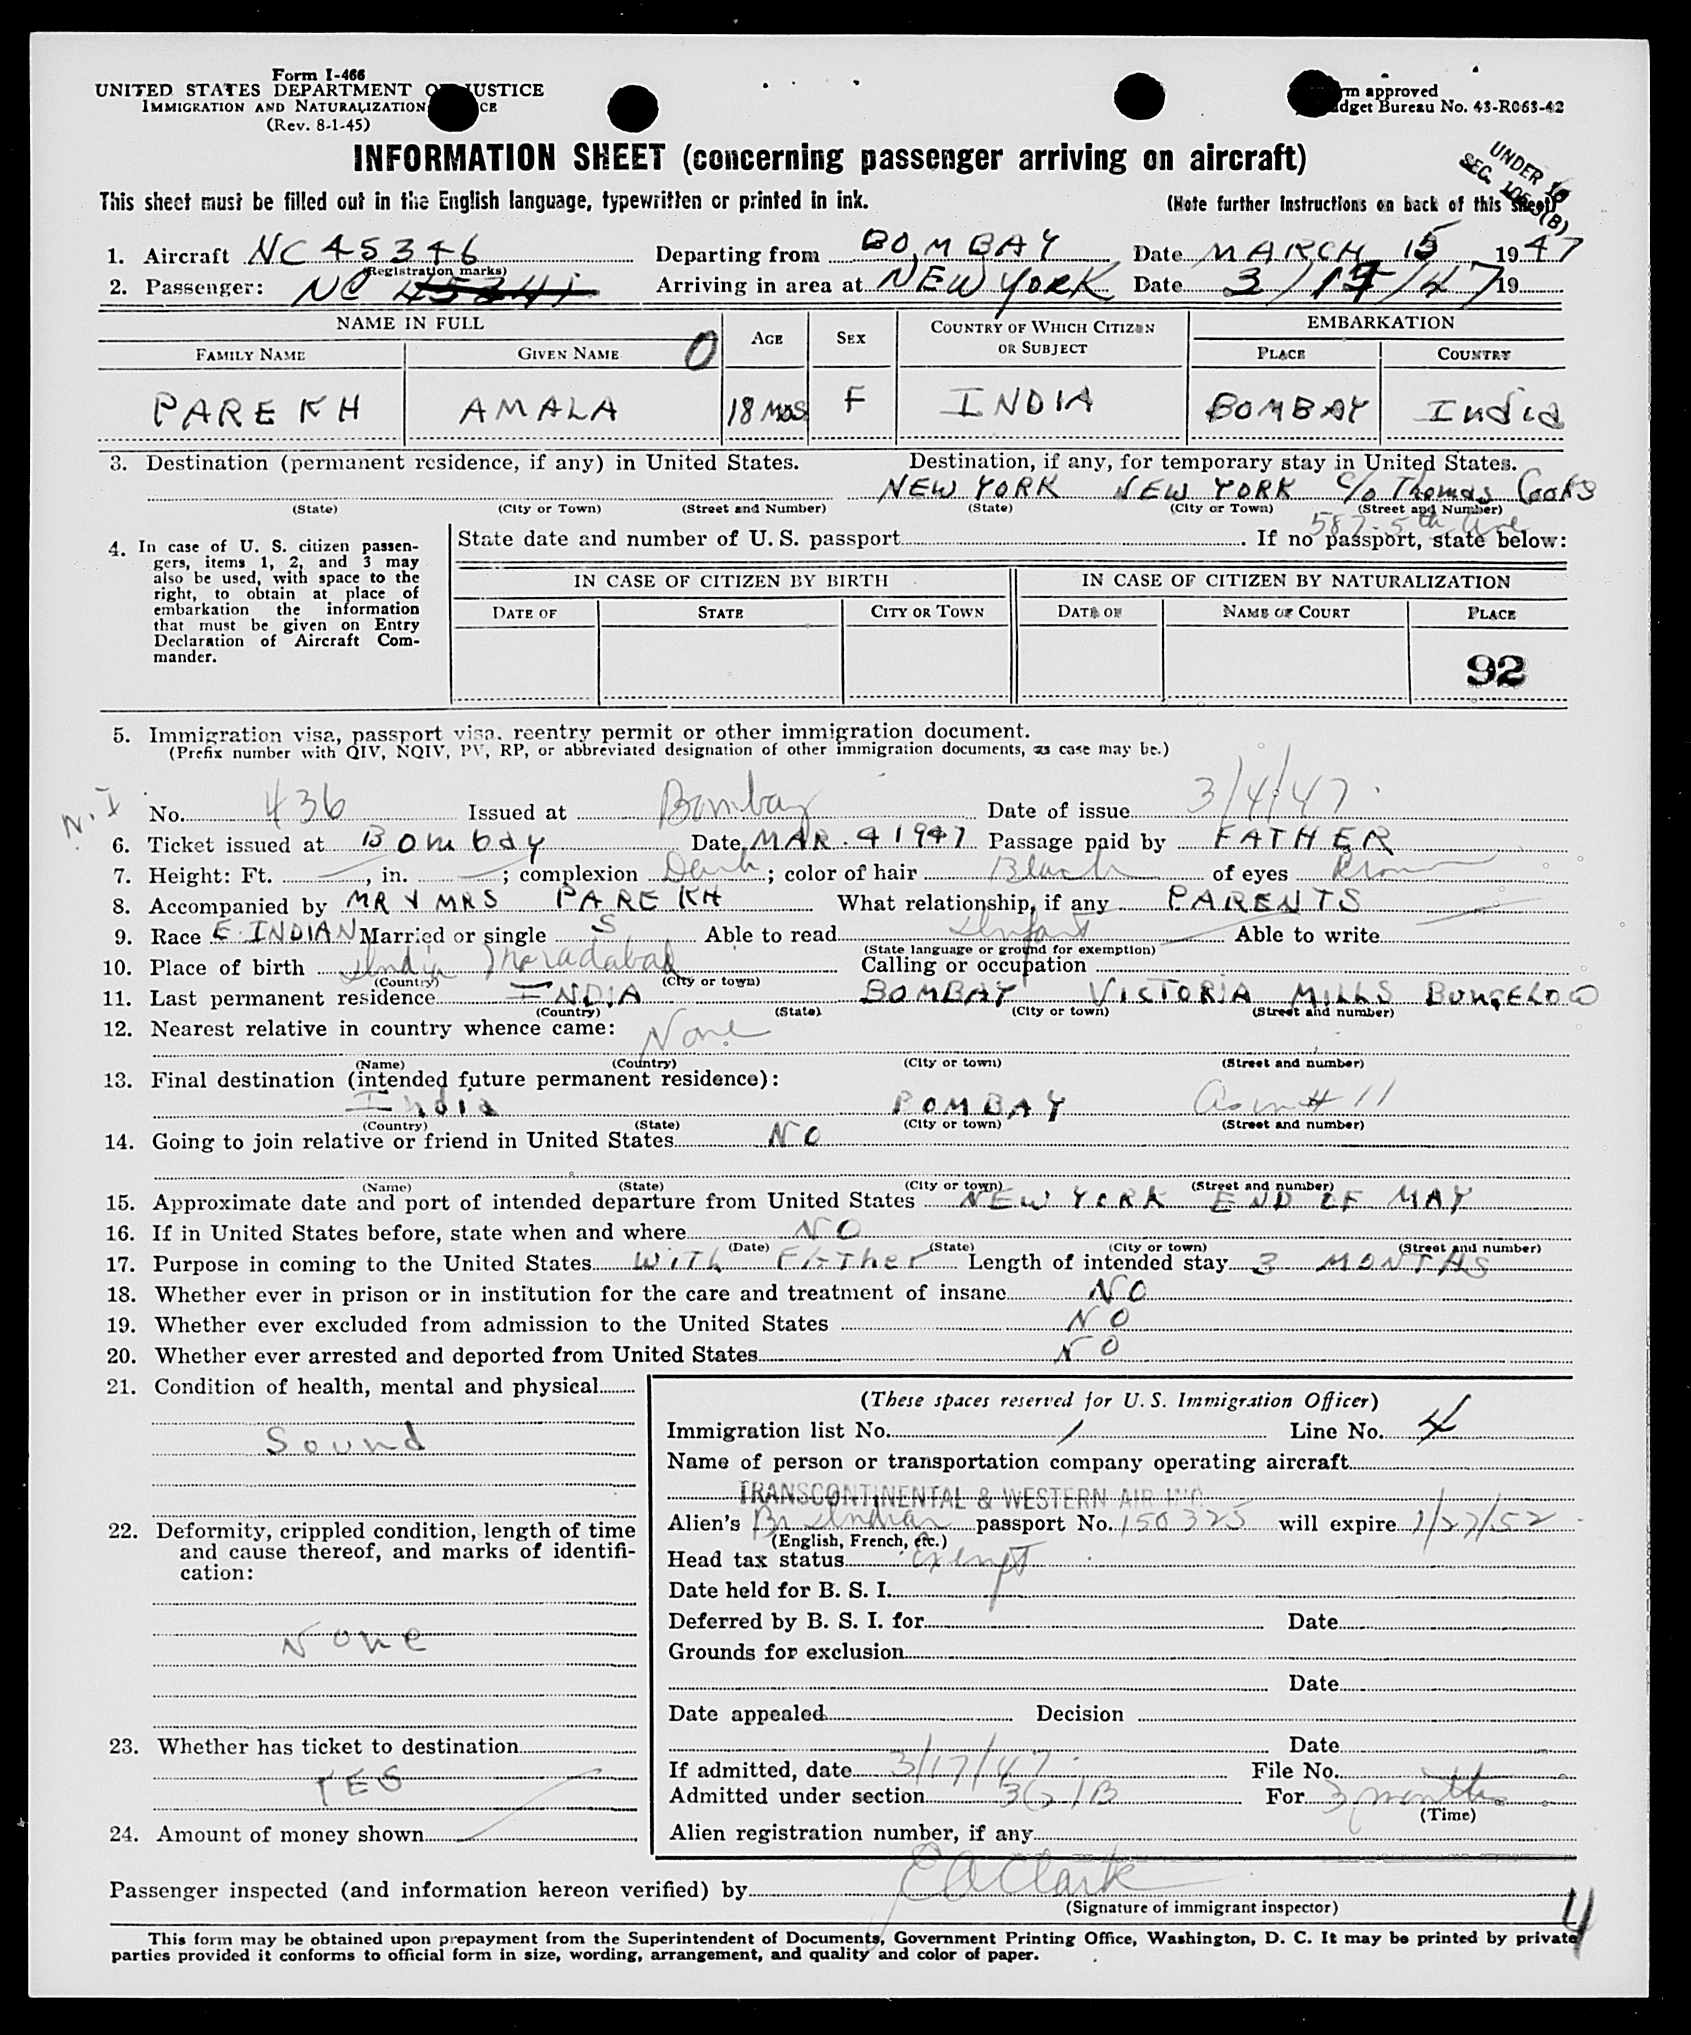 Form I-466
UNITED STATES DEPARTMENT OF JUSTICE
IMMIGRATION AND NATURALIZATION
(Rev. 8-1-45)
approved
Budget Bureau No. 43-R063-42
INFORMATION SHEET (concerning passenger arriving on aircraft)
UNDER 16
SEC. 105.3(B)
This sheet must be filled out in the English language, typewritten or printed in ink. (Note further instructions on back of this sheet)
1. Aircraft NC 45346 Departing from BOMBAY Date MARCH 15 1947
(Registration marks)
2. Passenger: NC Arriving in area at NEW YORK Date 3/17/47 19
NAME IN FULL AGE SEX COUNTRY OF WHICH CITIZEN OR SUBJECT EMBARKATION
FAMILY NAME GIVEN NAME 0 PLACE COUNTRY
PAREKH AMALA 18 MOS F INDIA BOMBAY India
3. Destination (permanent residence, if any) in United States. Destination, if any, for temporary stay in United States.
NEW YORK NEW YORK C/o Thomas Cooks
(State) (City or Town) (Street and Number) (State) (City or Town) (Street and Number)
587-5th ave
4. In case of U. S. citizen passengers, items 1, 2, and 3 may also be used, with space to the right, to obtain at place of embarkation the information that must be given on Entry Declaration of Aircraft Commander.
State date and number of U. S. passport If no passport, state below:
IN CASE OF CITIZEN BY BIRTH IN CASE OF CITIZEN BY NATURALIZATION
DATE OF STATE CITY OR TOWN DATE OF NAME OF COURT PLACE
92
5. Immigration visa, passport visa, reentry permit or other immigration document.
(Prefix number with QIV, NQIV, PV, RP, or abbreviated designation of other immigration documents, as case may be.)
N.I No. 436 Issued at Bombay Date of issue 3/4/47
6. Ticket issued at Bombay Date MAR. 4 1947 Passage paid by FATHER
7. Height: Ft. , in. ; complexion Dark; color of hair Black of eyes Brown
8. Accompanied by MR & MRS PAREKH What relationship, if any PARENTS
9. Race E. INDIAN Married or single S Able to read Infant Able to write
(State language or ground for exemption)
10. Place of birth India Moradabad Calling or occupation
(Country) (City or town)
11. Last permanent residence INDIA BOMBAY VICTORIA MILLS BUNGELOO
(Country) (State) (City or town) (Street and number)
12. Nearest relative in country whence came: None
(Name) (Country) (City or town) (Street and number)
13. Final destination (intended future permanent residence):
India BOMBAY As in # 11
(Country) (State) (City or town) (Street and number)
14. Going to join relative or friend in United States NO
(Name) (State) (City or town) (Street and number)
15. Approximate date and port of intended departure from United States NEW YORK END OF MAY
16. If in United States before, state when and where NO
(Date) (State) (City or town) (Street and number)
17. Purpose in coming to the United States With FATher Length of intended stay 3 MONTHS
18. Whether ever in prison or in institution for the care and treatment of insane NO
19. Whether ever excluded from admission to the United States NO
20. Whether ever arrested and deported from United States NO
21. Condition of health, mental and physical
Sound
22. Deformity, crippled condition, length of time and cause thereof, and marks of identification:
None
23. Whether has ticket to destination
YES
24. Amount of money shown
(These spaces reserved for U. S. Immigration Officer)
Immigration list No. 1 Line No. 4
Name of person or transportation company operating aircraft
TRANSCONTINENTAL & WESTERN AIR INC.
Alien's Br Indian passport No. 150325 will expire 1/27/52
(English, French, etc.)
Head tax status exempt
Date held for B. S. I.
Deferred by B. S. I. for Date
Grounds for exclusion
Date
Date appealed Decision
Date
If admitted, date 3/17/47 File No.
Admitted under section 3(2)B For 3 months
(Time)
Alien registration number, if any
Passenger inspected (and information hereon verified) by EA Clark
(Signature of immigrant inspector)
4
This form may be obtained upon prepayment from the Superintendent of Documents, Government Printing Office, Washington, D. C. It may be printed by private
parties provided it conforms to official form in size, wording, arrangement, and quality and color of paper.